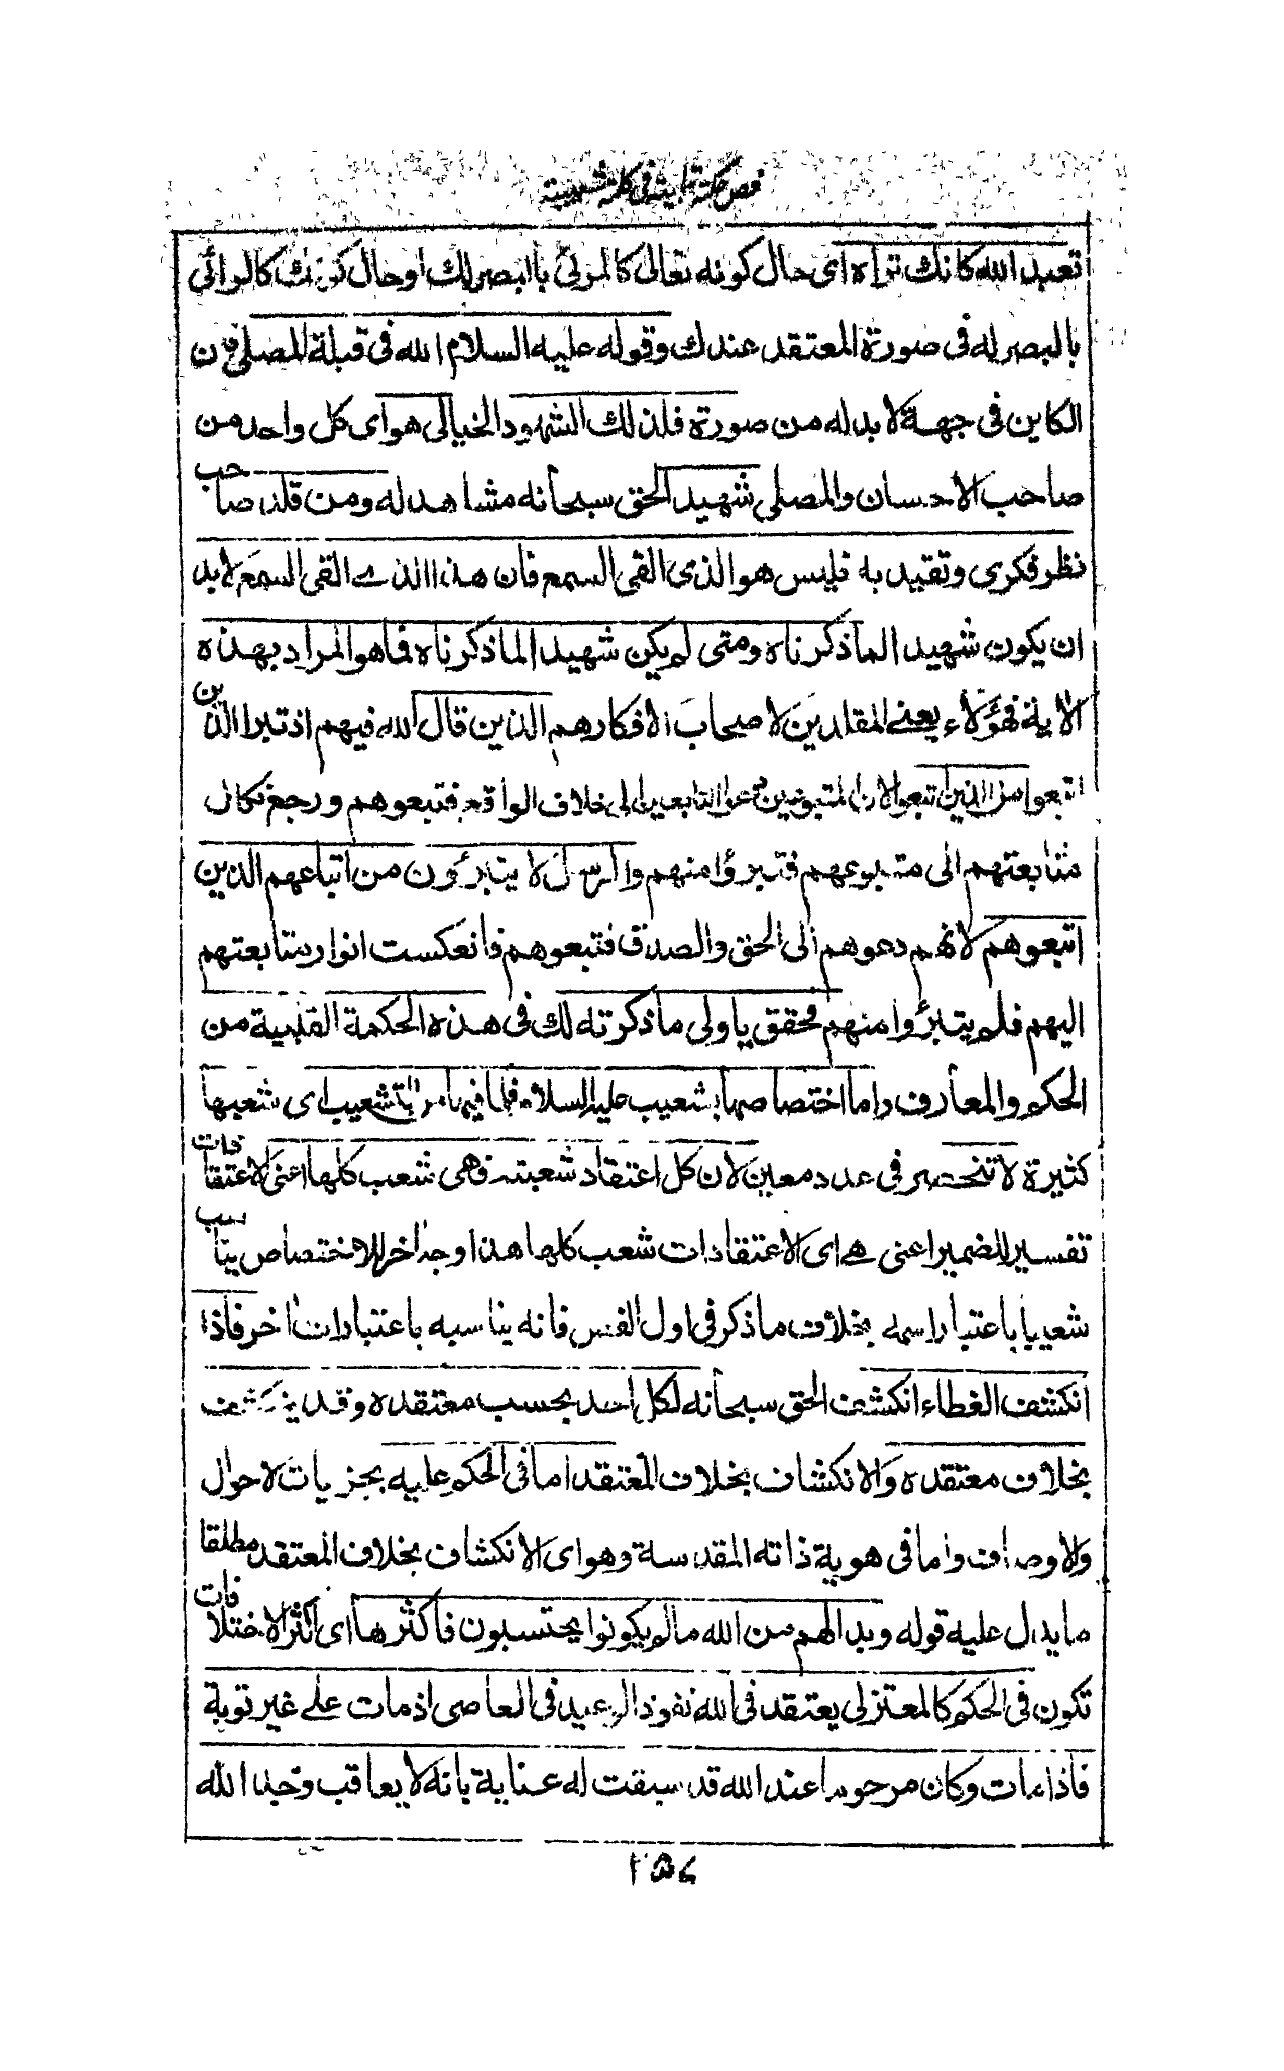 فص حكمة قلبية في كلمة شعيبية
تعبد الله كانك تراه اى حال كونه تعالى كالمرئى بالبصر لك او حال كونك كالرائى
بالبصر له فى صورة المعتقد عندك وقوله عليه السلام الله فى قبلة المصلى فان
الكاين فى جهة لا بد له من صورة فلذلك الشهود الخيالى هو اى كل واحد من
صاحب الاحسان والمصلى شهيد الحق سبحانه مشاهد له ومن قلد صاحب
نظر فكرى وتقيد به فليس هو الذى القى السمع فان هذا الذى القى السمع لا بد
ان يكون شهيدا لما ذكرناه ومتى لم يكن شهيدا لما ذكرناه فما هو المراد بهذه
الاية فهؤلاء يعنى المقلدين لاصحاب الافكار هم الذين قال الله فيهم اذ تبرا الذين
اتبعوا من الذين اتبعوا لان المتبوعين دعوا التابعين الى خلاف الواقع فتبعوهم ورجع نكال
متابعتهم الى متبوعهم فتبرؤا منهم والرسل لا يتبرئون من اتباعهم الذين
اتبعوهم لانهم دعوهم الى الحق والصدق فتبعوهم فانعكست انوار متابعتهم
اليهم فلم يتبرؤا منهم فحقق يا ولى ما ذكرته لك فى هذه الحكمة القلبية من
الحكم والمعارف واما اختصاصها بشعيب عليه السلام فلما فيها من التشعيب اى شعبها
كثيرة لا تنحصر فى عدد معين لان كل اعتقاد شعبته فهى شعب كلها اعنى الاعتقادات
تفسير للضمير اعنى هى اى الاعتقادات شعب كلها هذا وجه اخر للاختصاص يناسب
شعيبا باعتبار اسمه بخلاف ما ذكر فى اول الفص فانه يناسبه باعتبارات اخر فاذا
انكشف الغطاء انكشف الحق سبحانه لكل احد بحسب معتقده وقد ينكشف
بخلاف معتقده والانكشاف بخلاف المعتقد اما فى الحكم عليه بجزيات الاحوال
والاوصاف واما فى هوية ذاته المقدسة وهو اى الانكشاف بخلاف المعتقد مطلقا
ما يدل عليه قوله وبدا لهم من الله ما لم يكونوا يحتسبون فاكثرها اى اكثر الاختلافات
تكون فى الحكم كالمعتزلى يعتقد فى الله نفوذ الوعيد فى العاصى اذ مات على غير توبة
فاذا مات وكان مرحوما عند الله قد سبقت له عناية بانه لا يعاقب وجد الله